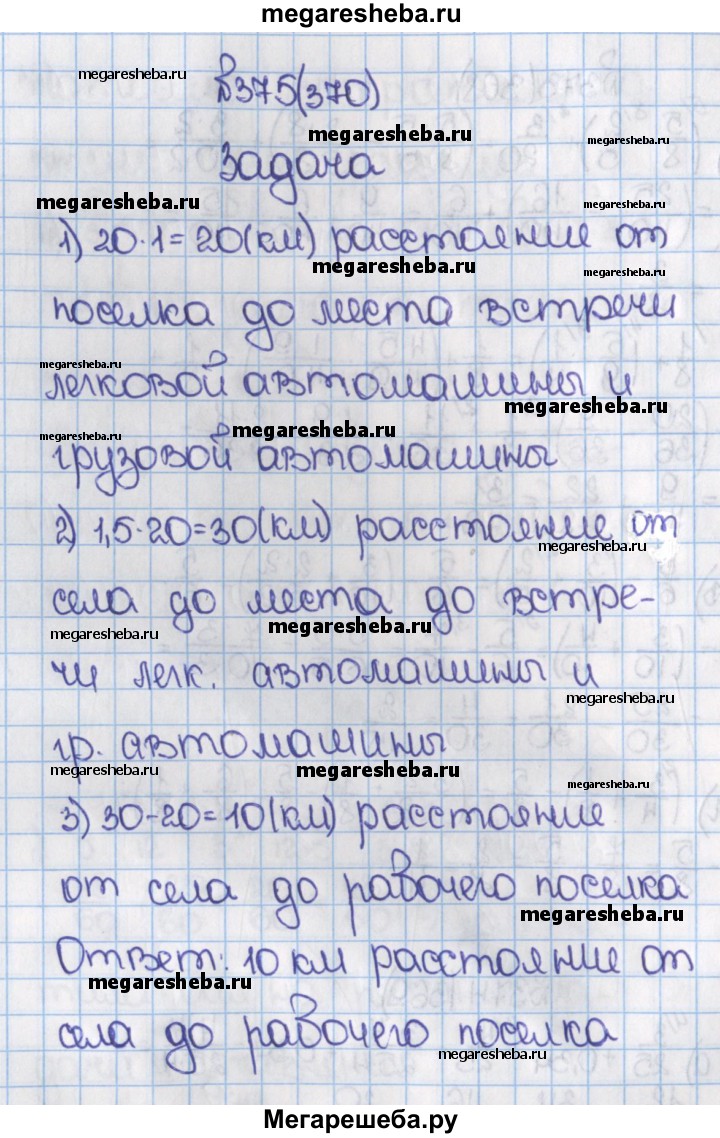 megaresheba.ru
megaresheba.ru
№375(370)
megaresheba.ru
megaresheba.ru
Задача
megaresheba.ru
megaresheba.ru
1) 20·1=20(км) расстояние от
megaresheba.ru
megaresheba.ru
поселка до места встречи
megaresheba.ru
легковой автомашины и
megaresheba.ru
megaresheba.ru
megaresheba.ru
грузовой автомашины
2) 1,5·20=30(км) расстояние от
megaresheba.ru
села до места до встре-
megaresheba.ru
megaresheba.ru
чи легк. автомашины и
megaresheba.ru
гр. автомашины
megaresheba.ru
megaresheba.ru
megaresheba.ru
3) 30-20=10(км) расстояние
от села до рабочего поселка
megaresheba.ru
Ответ: 10 км расстояние от
megaresheba.ru
села до рабочего поселка
megaresheba.ru
Мегарешеба.ру